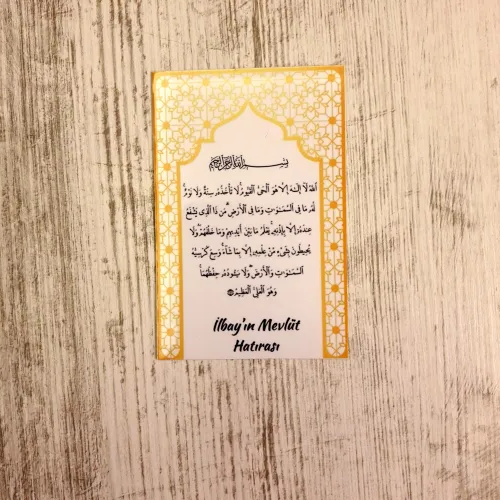 بسم الله الرحمن الرحيم
اللَّهُ لَا إِلَٰهَ إِلَّا هُوَ الْحَيُّ الْقَيُّومُ لَا تَأْخُذُهُ سِنَةٌ وَلَا نَوْمٌ
لَهُ مَا فِي السَّمَاوَاتِ وَمَا فِي الْأَرْضِ مَنْ ذَا الَّذِي يَشْفَعُ
عِنْدَهُ إِلَّا بِإِذْنِهِ يَعْلَمُ مَا بَيْنَ أَيْدِيهِمْ وَمَا خَلْفَهُمْ وَلَا
يُحِيطُونَ بِشَيْءٍ مِنْ عِلْمِهِ إِلَّا بِمَا شَاءَ وَسِعَ كُرْسِيُّهُ
السَّمَاوَاتِ وَالْأَرْضَ وَلَا يَئُودُهُ حِفْظُهُمَا
وَهُوَ الْعَلِيُّ الْعَظِيمُ
İlbay'ın Mevlüt
Hatırası